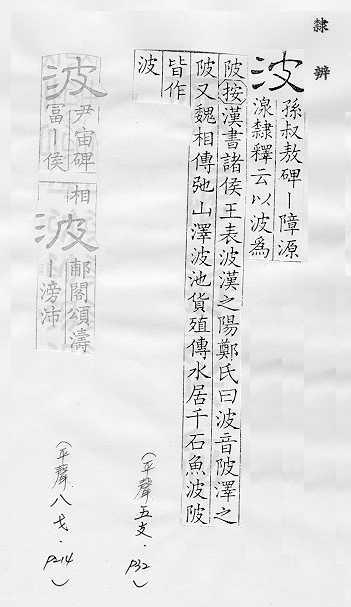 隸辨
波
孫叔敖碑丨障源
湶隸釋云以波為
陂按漢書諸侯王表波漢之陽鄭氏曰波音陂澤之
陂又魏相傳弛山澤波池貨殖傳水居千石魚波陂
皆作
波
(平聲五支·P32)
波
尹宙碑
富丨侯
相
波
郙閣頌濤
丨滂沛
(平聲八戈·P214)